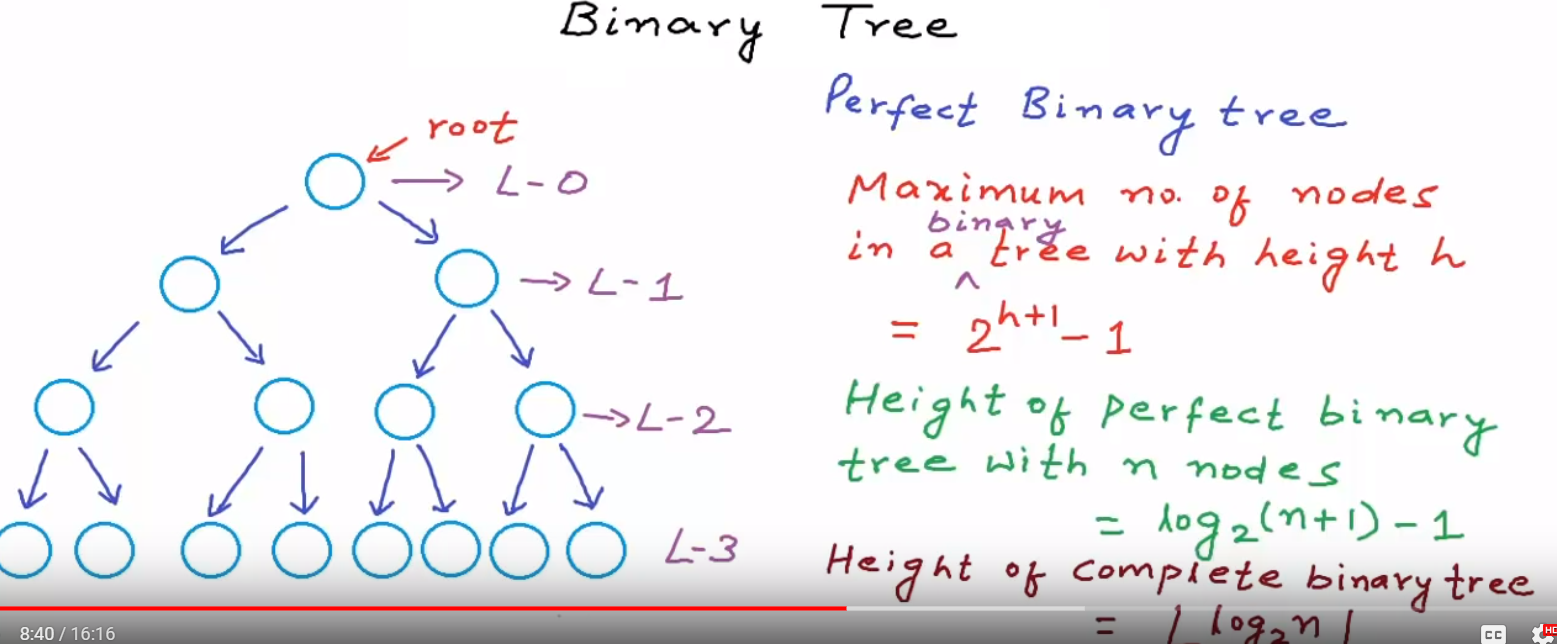 Binary Tree
root
L-0
L-1
L-2
L-3
Perfect Binary tree
Maximum no. of nodes
binary
in a ^ tree with height h
= 2^(h+1) - 1
Height of perfect binary
tree with n nodes
= log₂(n+1) - 1
Height of complete binary tree
= ⌊log₂n⌋
8:40 / 16:16
CC
HD